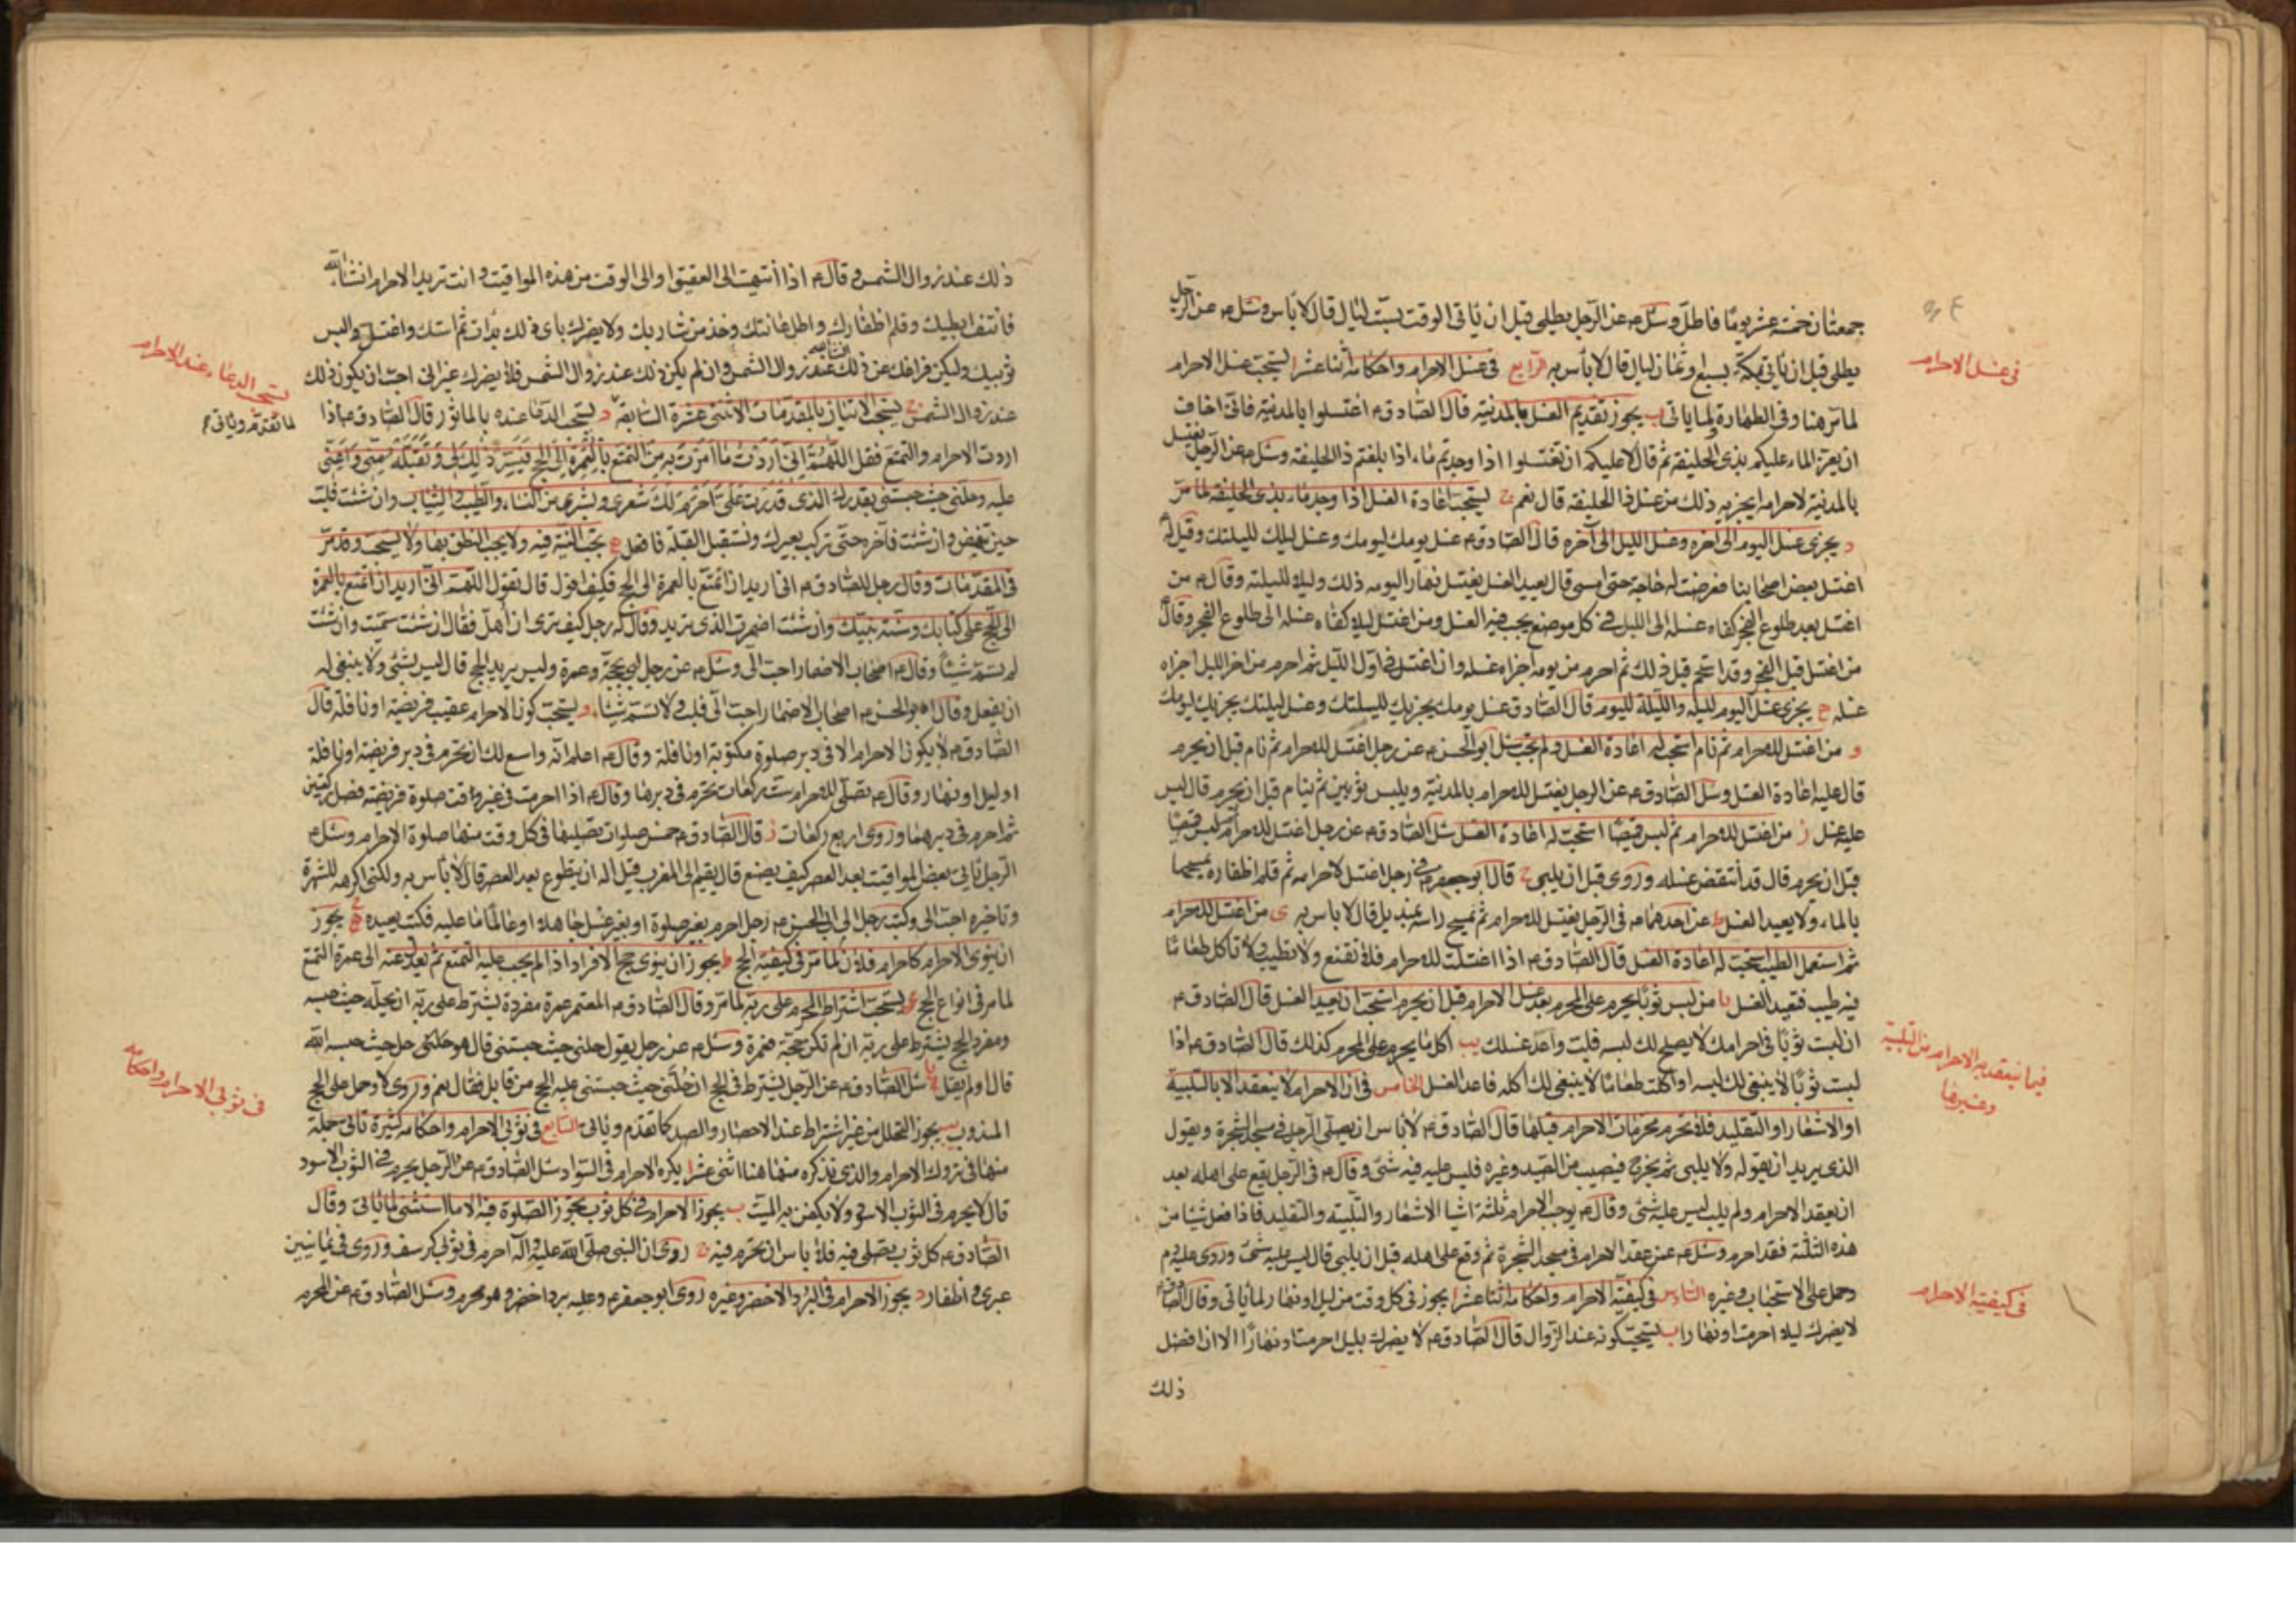 جمعتان خمسة عشر يوما فاطل وسئل ع عن الرجل يطلي قبل ان ياتي الوقت بست ليال قال لا باس وسئل ع عن الرجل
يطلي قبل ان ياتي مكة بسبع او ثمان ليال قال لا بأس به الرابع في غسل الاحرام واحكامه اثنا عشر ا يستحب غسل الاحرام
في غسل الاحرام
لما مر هنا وفي الطهارة ولما ياتي ب يجوز تقديم الغسل بالمدينة قال الصادق ع اغتسلوا بالمدينة فاني اخاف
ان يعز الماء عليكم بذي الحليفة ثم قال لا عليكم ان تغتسلوا اذا وجدتم ماء اذا بلغتم ذا الحليفة وسئل ع عن الرجل يغتسل
بالمدينة لاحرامه ايجزيه ذلك من غسل ذا الحليفة قال نعم ج يستحب اعادة الغسل اذا وجد ماء بذي الحليفة لما مر
د يجزي غسل اليوم الى آخره وغسل الليل الى آخره قال الصادق ع غسل يومك ليومك وغسل ليلك لليلتك وقيل له
اغتسل بعض اصحابنا فعرضت له حاجة حتى امسى قال يعيد الغسل يغتسل نهارا ليومه ذلك وليلا لليلته وقال ع من
اغتسل بعد طلوع الفجر كفاه غسله الى الليل في كل موضع يجب فيه الغسل ومن اغتسل ليلا كفاه غسله الى طلوع الفجر وقال ع
من اغتسل قبل الفجر وقد استحم قبل ذلك ثم احرم من يومه اجزاه غسله وان اغتسل في اول الليل ثم احرم من اخر الليل اجزاه
غسله ه يجزي غسل اليوم لليله والليلة لليوم قال الصادق غسل يومك يجزيك لليلتك وغسل ليلتك يجزيك ليومك
و من اغتسل للاحرام ثم نام استحب له اعادة الغسل ولم يجب سئل ابو الحسن ع عن رجل اغتسل للاحرام ثم نام قبل ان يحرم
قال عليه اعادة الغسل وسئل الصادق ع عن الرجل يغتسل للاحرام بالمدينة ويلبس ثوبين ثم ينام قبل ان يحرم قال ليس
عليه غسل ز من اغتسل للاحرام ثم لبس قميصا استحب له اعادة الغسل سئل الصادق ع عن رجل اغتسل للاحرام ثم لبس قميصا
قبل ان يحرم قال قد انتقض غسله وروي قبل ان يلبي ح قال ابو جعفر ع في رجل اغتسل لاحرامه ثم قلم اظفاره يمسحها
بالماء ولا يعيد الغسل ط عن احدهما ع في الرجل يغتسل للاحرام ثم يمسح راسه بمنديل قال لا باس به ى من اغتسل للاحرام
ثم استعمل الطيب استحب له اعادة الغسل قال الصادق ع اذا اغتسلت للاحرام فلا تقنع ولا تطيب ولا تاكل طعاما
فيه طيب فتعيد الغسل يا من لبس ثوبا يحرم على المحرم بعد غسل الاحرام قبل ان يحرم استحب ان يعيد الغسل قال الصادق ع
ان لبست ثوبا في احرامك لا يصلح لك لبسه فلبّ واعد غسلك يب اكل ما يحرم على المحرم كذلك قال الصادق ع اذا
فيما ينعقد به الاحرام من التلبية وغيرها
لبست ثوبا لا ينبغي لك لبسه او اكلت طعاما لا ينبغي لك اكله فاعد الغسل الخامس في ان الاحرام لا ينعقد الا بالتلبية
او الاشعار او التقليد فلا تحرم محرمات الاحرام قبلها قال الصادق ع لا باس ان يصلي الرجل في مسجد الشجرة ويقول
الذي يريد ان يقوله ولا يلبي ثم يخرج فيصيب من الصيد وغيره فليس عليه فيه شئ وقال ع في الرجل يقع على اهله بعد
ان يعقد الاحرام ولم يلب ليس عليه شئ وقال ع يوجب الاحرام ثلثة اشيا الاشعار والتلبية والتقليد فاذا فعل شيئا من
هذه الثلثة فقد احرم وسئل ع عن عقد الاحرام في مسجد الشجرة ثم وقع على اهله قبل ان يلبي قال ليس عليه شئ وروي عليه دم
وحمل على الاستحباب وغيره السادس في كيفية الاحرام واحكامه اثنا عشر ا يجوز في كل وقت من ليل او نهار لما ياتي وقال الصادق ع
في كيفية الاحرام
لا يضرك ليلا احرمت او نهارا ب يستحب كونه عند الزوال قال الصادق ع لا يضرك بليل احرمت او نهارا الا ان افضل
ذلك
ذلك عند زوال الشمس وقال ع اذا انتهيت الى العقيق او الى الوقت من هذه المواقيت وانت تريد الاحرام انشاء الله
فانتف ابطيك وقلم اظفارك واطل عانتك وخذ من شاربك ولا يضرك باى ذلك بدات ثم استك واغتسل والبس
ثوبيك وليكن فراغك عن ذلك انشاء الله عند زوال الشمس وان لم يكن ذلك عند زوال الشمس فلا يضرك غير اني احب ان يكون ذلك
يستحب الدعاء عند الاحرام
عند زوال الشمس ج يستحب الاتيان بالمقدمات الاثنى عشرة السابقة د يستحب الدعا عنده بالماثور قال الصادق ع اذا
لما تقدم وياتي
اردت الاحرام والتمتع فقل اللهم اني اردت ما امرت به من التمتع بالعمرة الى الحج فيسر ذلك لي وتقبله مني واعني
عليه وحلني حيث حبستني بقدرك الذي قدرت علي احرم لك شعري وبشري من النساء والطيب والثياب وان شئت فلبّ
حين تنهض وان شئت فآخره حتى تركب بعيرك وتستقبل القبلة فافعل ه يجب النية فيه ولا يجب النطق بها ولا يستحب وقد مر
في المقدمات وقال رجل للصادق ع اني اريد ان اتمتع بالعمرة الى الحج فكيف اقول قال تقول اللهم اني اريد ان اتمتع بالعمرة
الى الحج على كتابك وسنة نبيك وان شئت اضمرت الذي تريد وقال له رجل كيف ترى ان اهل فقال ان شئت سميت وان شئت
لم تسم شيئا وقال ع اصحاب الاضمار احب الي وسئل ع عن رجل لبى بحجة وعمرة وليس يريد الحج قال ليس بشئ ولا ينبغي له
ان يفعل وقال ابو الحسن ع اصحاب الاضمار احب الي فلب ولا تسم شيئا و يستحب كون الاحرام عقيب فريضة او نافلة قال
الصادق ع لا يكون الاحرام الا في دبر صلوة مكتوبة او نافلة وقال ع اعلم انه واسع لك ان تحرم في دبر فريضة او نافلة
او ليل او نهار وقال ع تصلي للاحرام ست ركعات تحرم في دبرها وقال ع اذا احرمت في غير وقت صلوة فريضة فصل ركعتين
ثم احرم في دبرهما وروي اربع ركعات ز قال الصادق ع خمس صلوات تصليها في كل وقت منها صلوة الاحرام وسئل ع
الرجل ياتي بعض المواقيت بعد العصر كيف يصنع قال يقيم الى المغرب قيل له ان يتطوع بعد العصر قال لا بأس به ولكني اكرهه للشهرة
وتاخيره احب الي وكتب رجل الى ابي الحسن ع رجل احرم بغير صلوة او بغير غسل جاهلا او عالما ما عليه فكتب يعيده ح يجوز
ان ينوي الاحرام كاحرام فلان لما مر في كيفية الحج ط يجوز ان ينوي حج الافراد اذا لم يجب عليه التمتع ثم يعدل عنه الى عمرة التمتع
لما مر في انواع الحج ى يستحب اشتراط المحرم على ربه لما مر وقال الصادق ع المعتمر عمرة مفردة يشترط على ربه ان يحله حيث حبسه
ومفرد الحج يشترط على ربه ان لم تكن حجة فعمرة وسئل ع عن رجل يقول حلني حيث حبستني قال هو حل حيث حبسه الله
قال او لم يقل يا سئل الصادق ع عن الرجل يشترط في الحج ان حلني حيث حبستني عليه الحج من قابل فقال نعم وروي لا وحمل على الحج
في ثوبي الاحرام واحكامه
المندوب يب يجوز التحلل من غير اشتراط عند الاحصار والصد كما تقدم وياتي السابع في ثوبي الاحرام واحكامه كثيرة تاتي جملة
منها في تروك الاحرام والذي نذكره منها هنا اثنى عشر ا يكره الاحرام في السواد سئل الصادق ع عن الرجل يحرم في الثوب الاسود
قال لا يحرم في الثوب الاسود ولا يكفن به الميت ب يجوز الاحرام في كل ثوب تجوز الصلوة فيه الا ما استثنى لما ياتي وقال
الصادق ع كل ثوب يصلى فيه فلا باس ان تحرم فيه ج روي ان النبي صلى الله عليه وآله احرم في ثوبي كرسف وروي في يمانيين
عبري واظفار د يجوز الاحرام في البرد الاخضر وغيره روي ابو جعفر ع وعليه برد اخضر وهو محرم وسئل الصادق ع عن المحرم